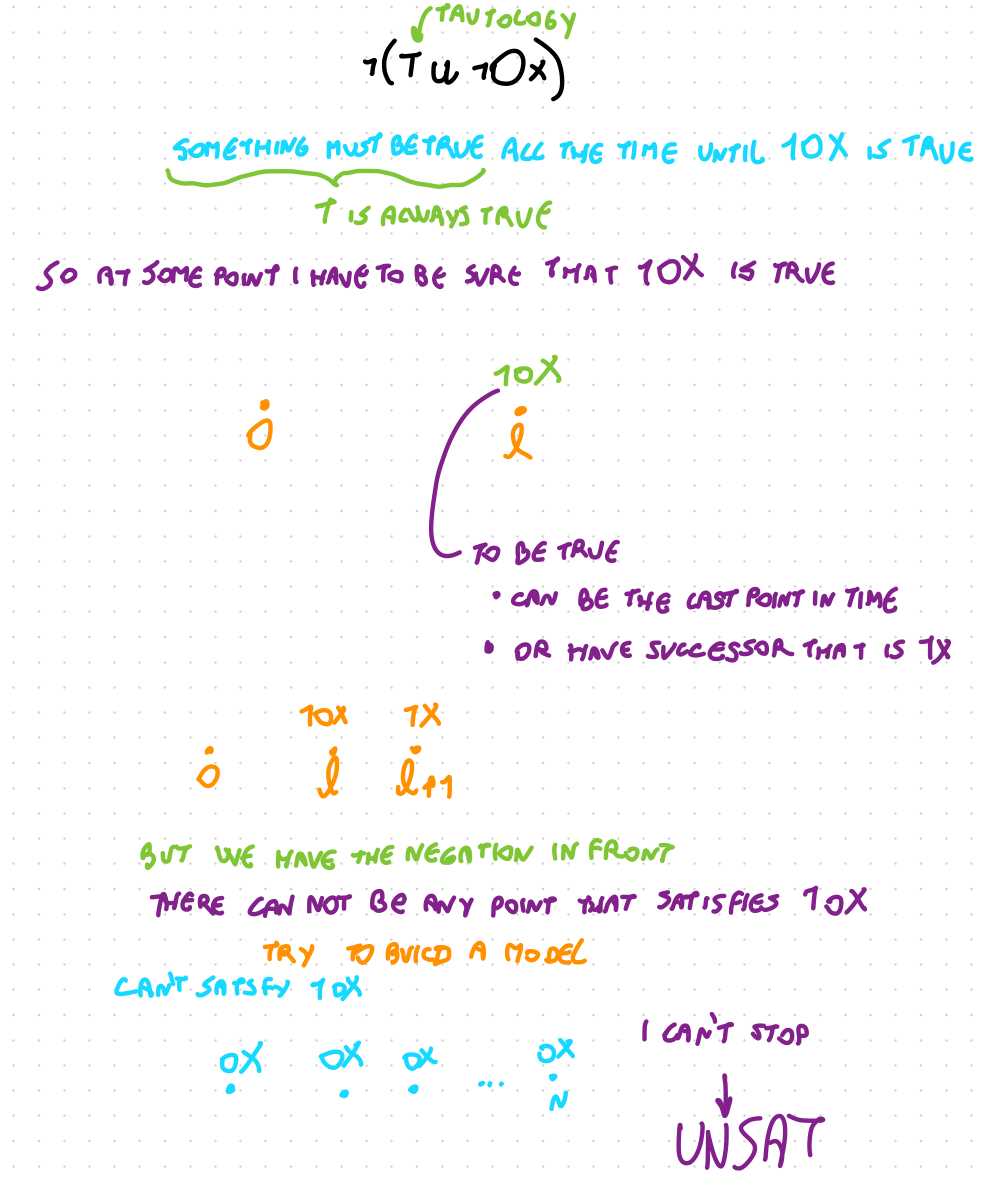 TAUTOLOGY
¬(T U ¬OX)
SOMETHING MUST BE TRUE ALL THE TIME UNTIL ¬OX IS TRUE
T IS ALWAYS TRUE
SO AT SOME POINT I HAVE TO BE SURE THAT ¬OX IS TRUE
¬OX
0 l
TO BE TRUE
• CAN BE THE LAST POINT IN TIME
• OR HAVE SUCCESSOR THAT IS ¬X
¬OX ¬X
0 l l+1
BUT WE HAVE THE NEGATION IN FRONT
THERE CAN NOT BE ANY POINT THAT SATISFIES ¬OX
TRY TO BUILD A MODEL
CAN'T SATISFY ¬OX
I CAN'T STOP
OX OX OX ... OX
N
UNSAT